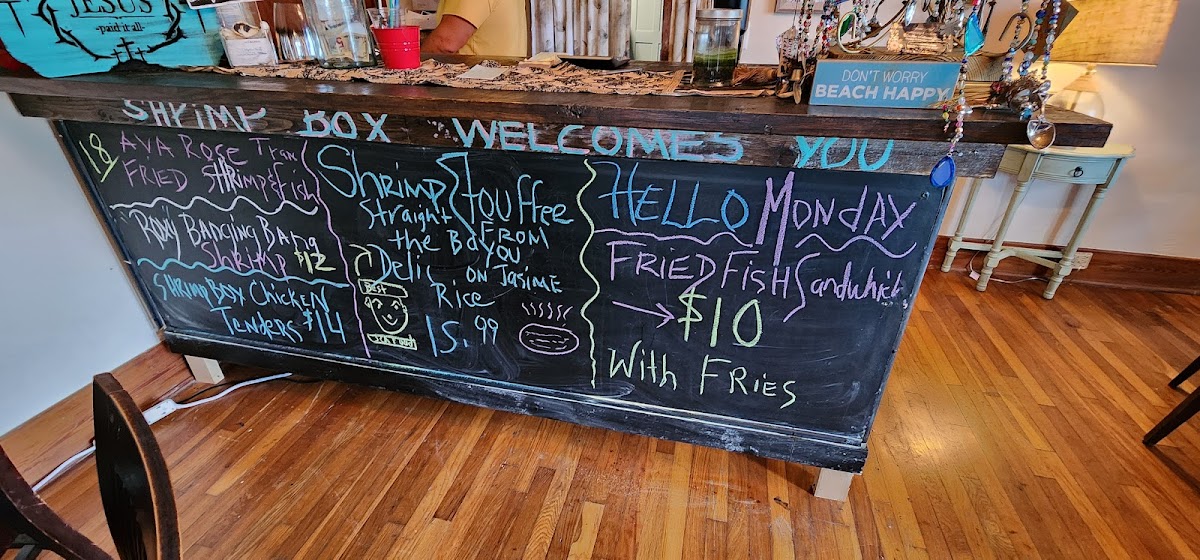 JESUS
paid it all
DON'T WORRY
BEACH HAPPY
SHRIMP BOX WELCOMES YOU
18
AVA ROSE Tran
FRIED SHRIMP & Fish
ROXY BANGING BANG
SHRIMP $12
SHRIMP BOX CHICKEN
TENDERS $14
SHRIMP ETOUFFEE
Straight FROM
the BAYOU
Delic ON JASIME
Rice
BEST
15.99
HELLO MONDAY
FRIED FISH Sandwhich
$10
With FRIES